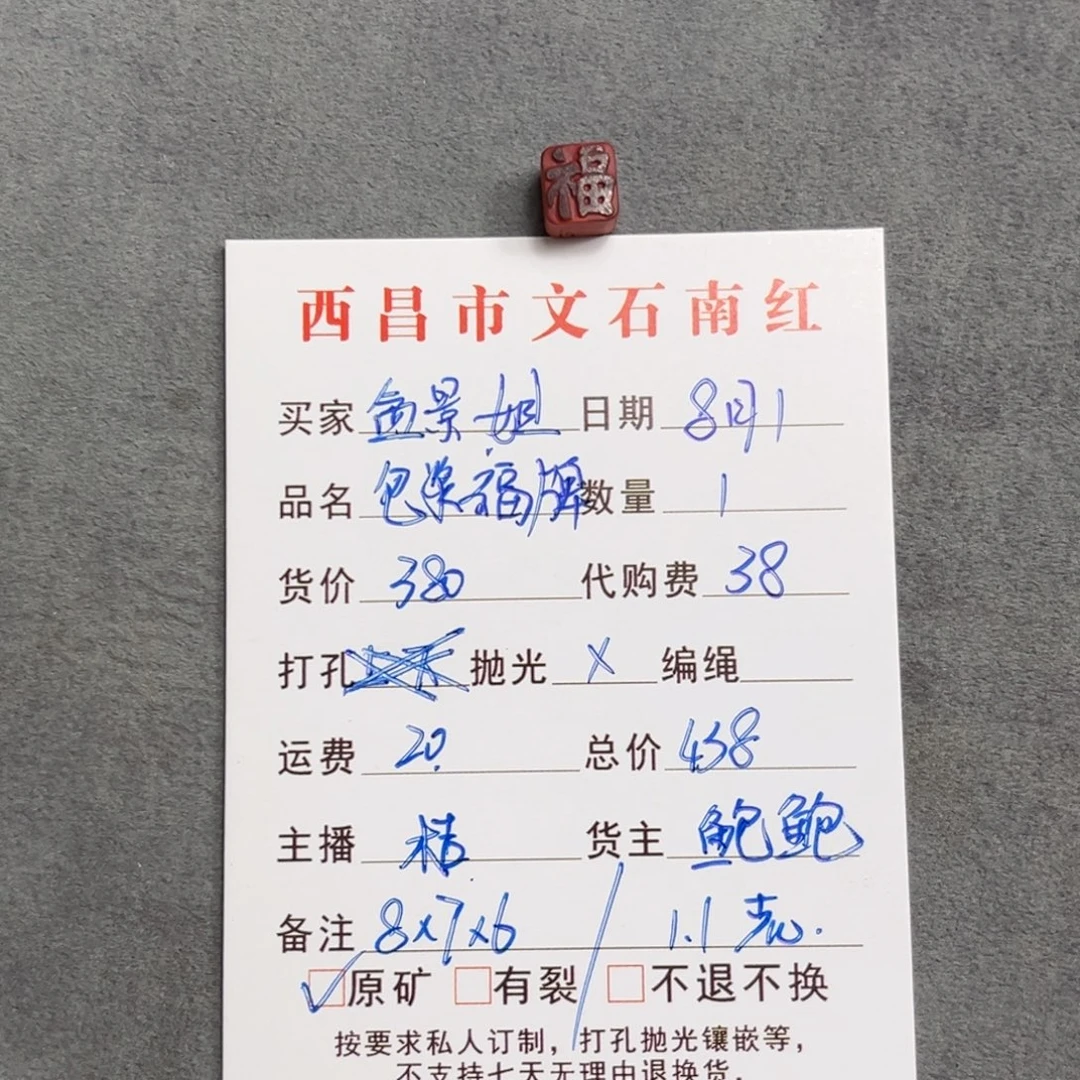 福
西昌市文石南红
买家 盒景姐 日期 8月1
品名 包浆福牌 数量 1
货价 380 代购费 38
打孔 抛光 X 编绳
运费 20. 总价 438
主播 桔 货主 鲍鲍
备注 8x7x6 / 1.1克.
✓原矿 □有裂 □不退不换
按要求私人订制，打孔抛光镶嵌等，
不支持七天无理由退换货。